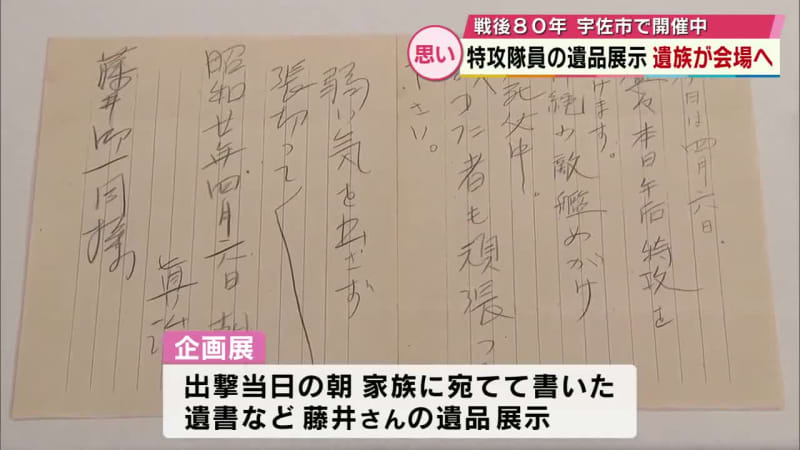 戦後80年 宇佐市で開催中
思い
特攻隊員の遺品展示 遺族が会場へ
日は四月六日.
本日午后特攻を
けます。
の敵艦めがけ
た者も頑張つ
さい。
弱い気を出さず
張切って
昭和廿年四月六日
眞治
藤井御一同様
企画展
出撃当日の朝 家族に宛てて書いた
遺書など 藤井さんの遺品 展示